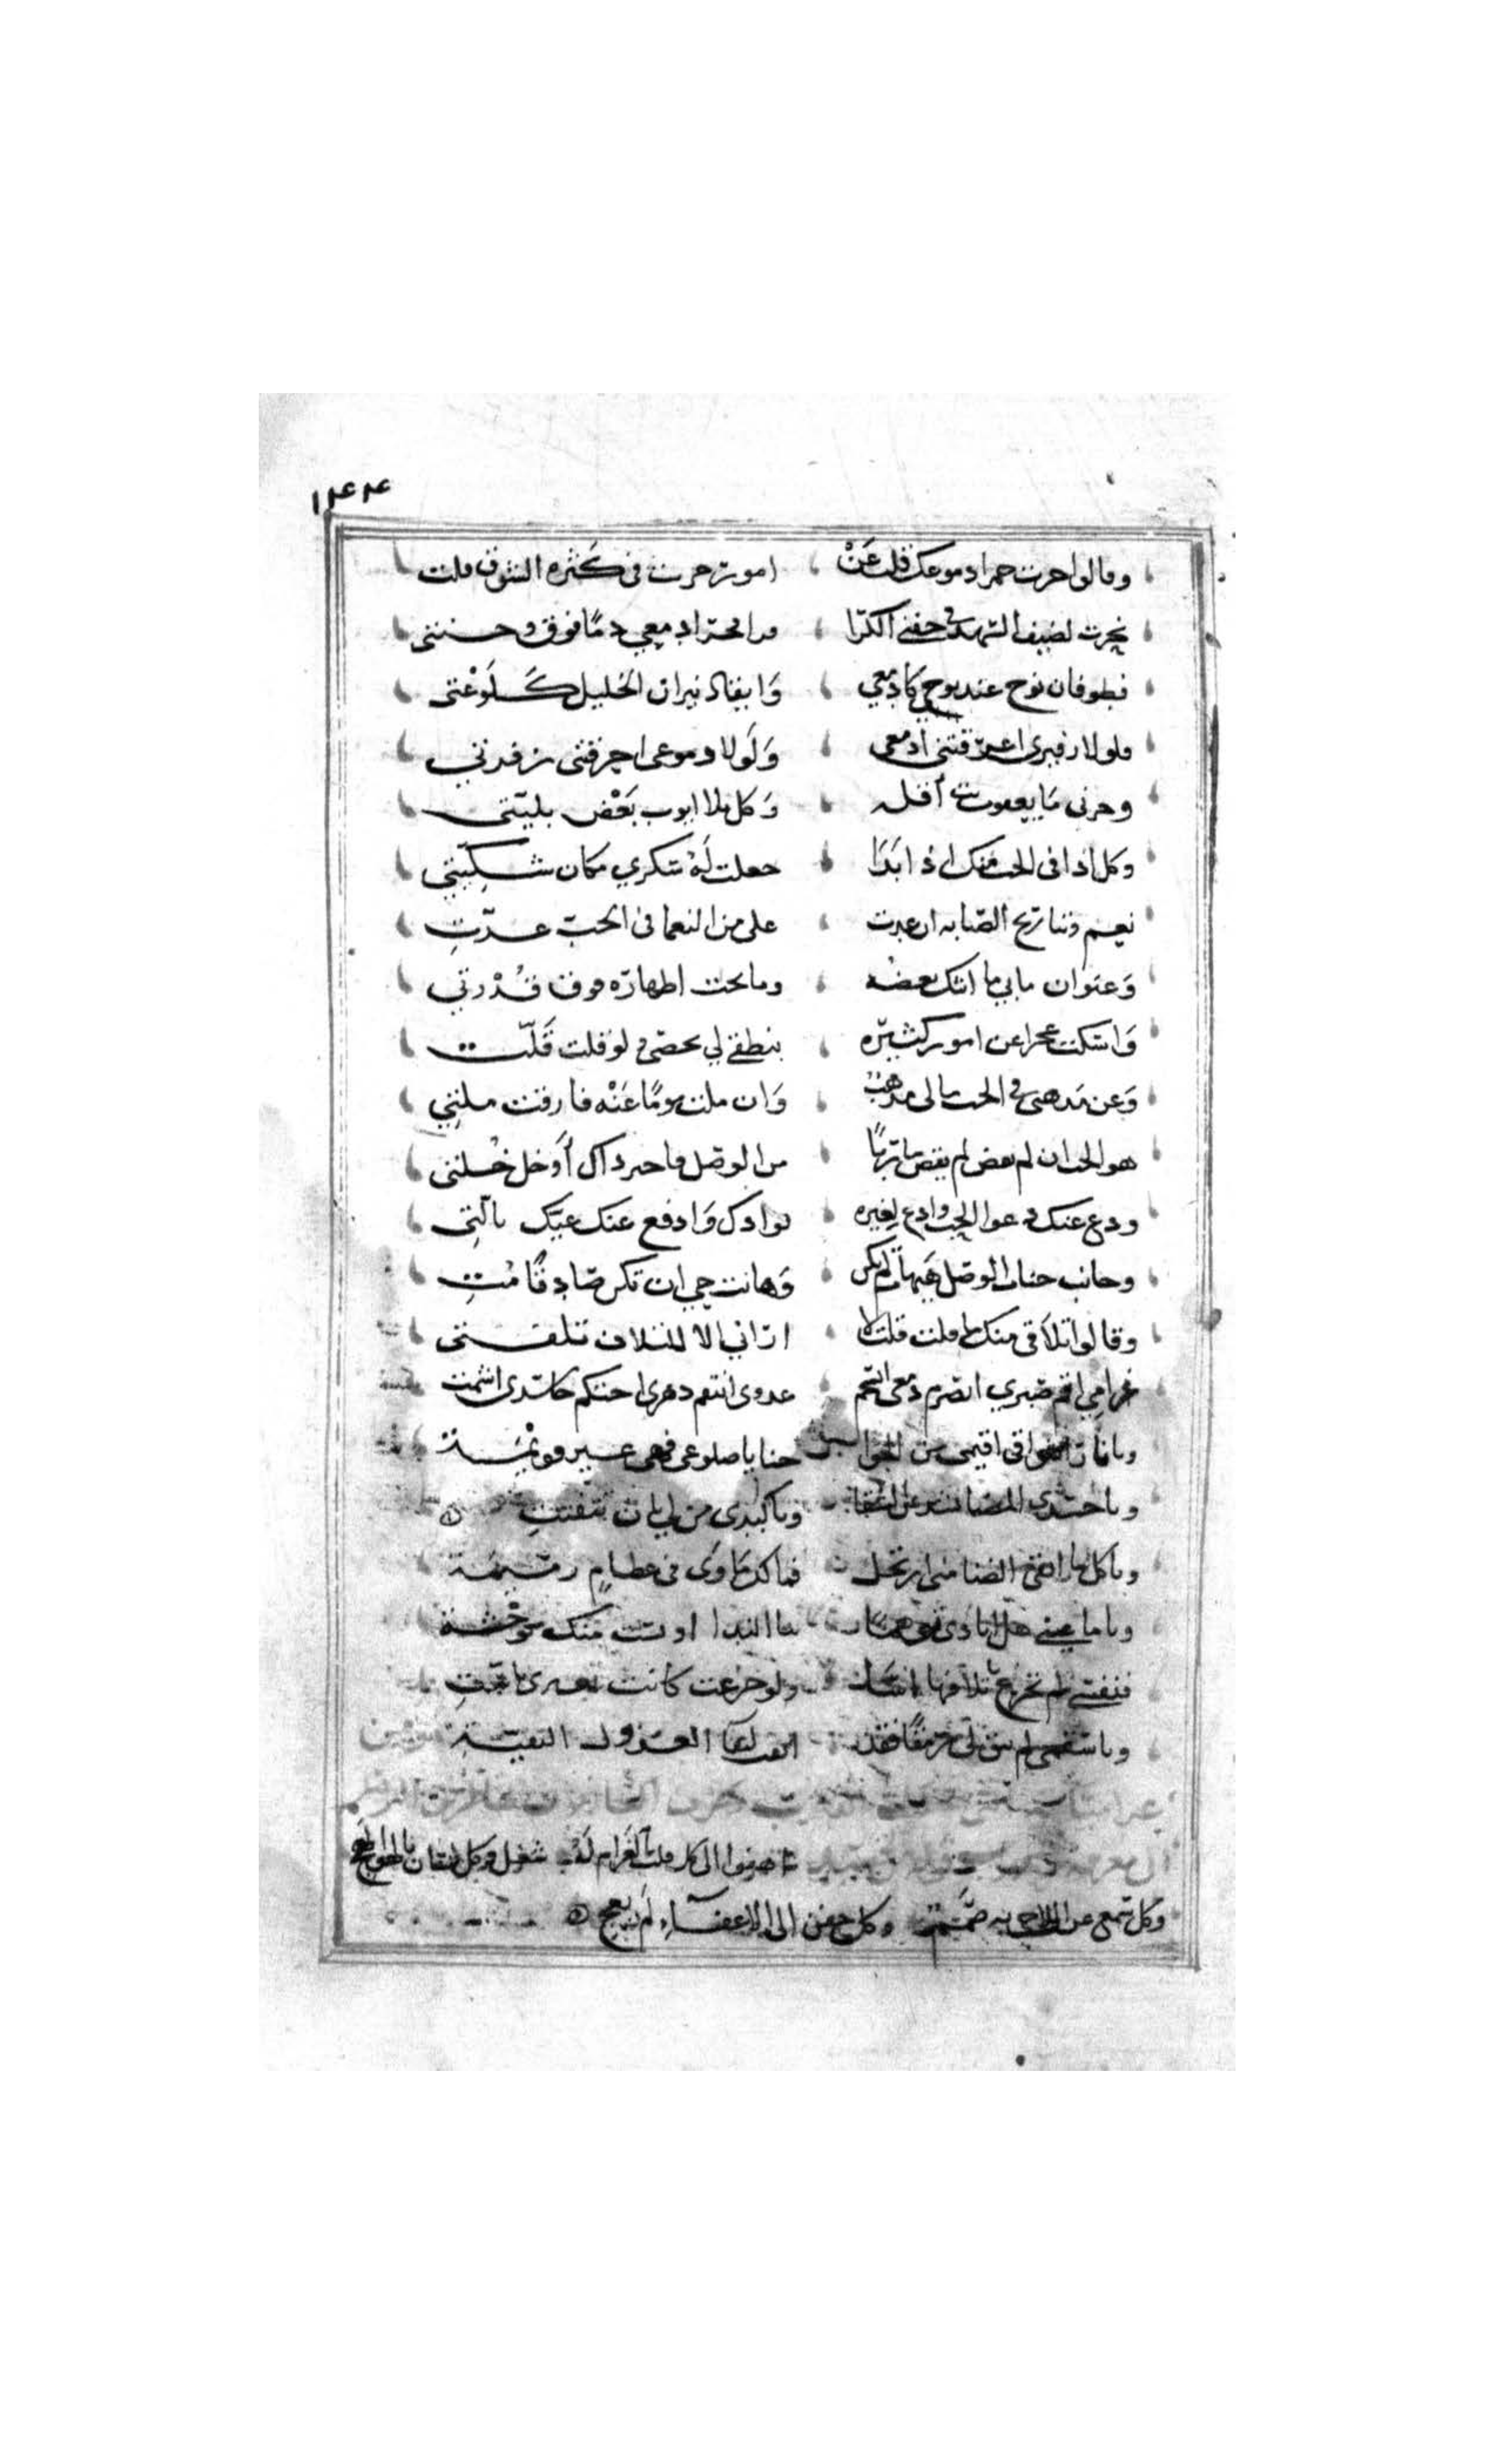 ١٢٤٤
وقالوا جرت حمرا دموعك قلت عَنْ امور جرت فى كَثره الشوق قلت
نحرت لضيف السهد فى جفنى الكرا قرا فجرا دمعي دمًا فوق وجنتى
فطوفان نوح عند نوحي كادمعي وَايقاد نيران الخليل كَلَوْعَتى
فلولا زفيرى اغرقتنى ادمعى وَلَولا دموعى احرقتنى زفرتي
وحزنى مَا يعقوب بث أقله وَكل بلا ايوب بَعْض بليّتى
وكل اذا فى الحب منك اذ ابَدَا جعلت لَهُ شكري مكان شكِيّتي
نعم وتباريح الصّبابه ان عدت على من النعما فى الحبّ عدّتِ
وَعنوان ما بي ما ابثك بعضه وما تحت اظهارَه فوق قُدْرتي
وَاسكت عجزا عن امور كثيرَه بنطقى لن تحصى ولو قلت قَلّت
وَعن مَذهبى فى الحب مالى مذهبٌ وَان ملت يومًا عَنْه فارقت ملتِي
هو الحب ان لم تقض لم تقض ماربًا من الوصل فاختر ذاك أَو خل خُلتى
ودع عنك دعوا الحب وادع لغيره فوادك وَادفع عنك غيّك بالّتِى
وجانب جناب الوصل هَيهات لم يكن وَهَا انت حي ان تكن صَادقًا مُتِ
وقالوا تلافى منك ما قلت قلت لا ارانى الا للتلاف تلفتى
غرامي اقم صبري انصرم دمعى انسجم عدوى انتقم دهرى احتكم حاسدى اشمت
ويا نار احشواقى اقيمى من الجوا حنايا ضلوعى فهى غير قويْمَة
ويا جسدى المضنا تسل عن الشفا ويا كبدى من لي بان تتفتتِ
ويا كل ما ابقى الضنا منى ارتحل فما لك مَاوَى فى عظامٍ رميمَة
ويا ما عسى منى انادى توهمًا بيا الندا اونست منك بوَحْشة
فنفسى لم تجزع باتلافها اسًا ولو جزعت كانت بغيرى تاسّتِ
ويا سقمى لم تبق لى رمقًا فقد
اصفوا الى كل قلب بالغرام لَهُ شغل وكل لسان بالهوى لهج
وكل سمع عن اللاحى به صَمَم وكل جفن الى الاغفاء لَم يعج